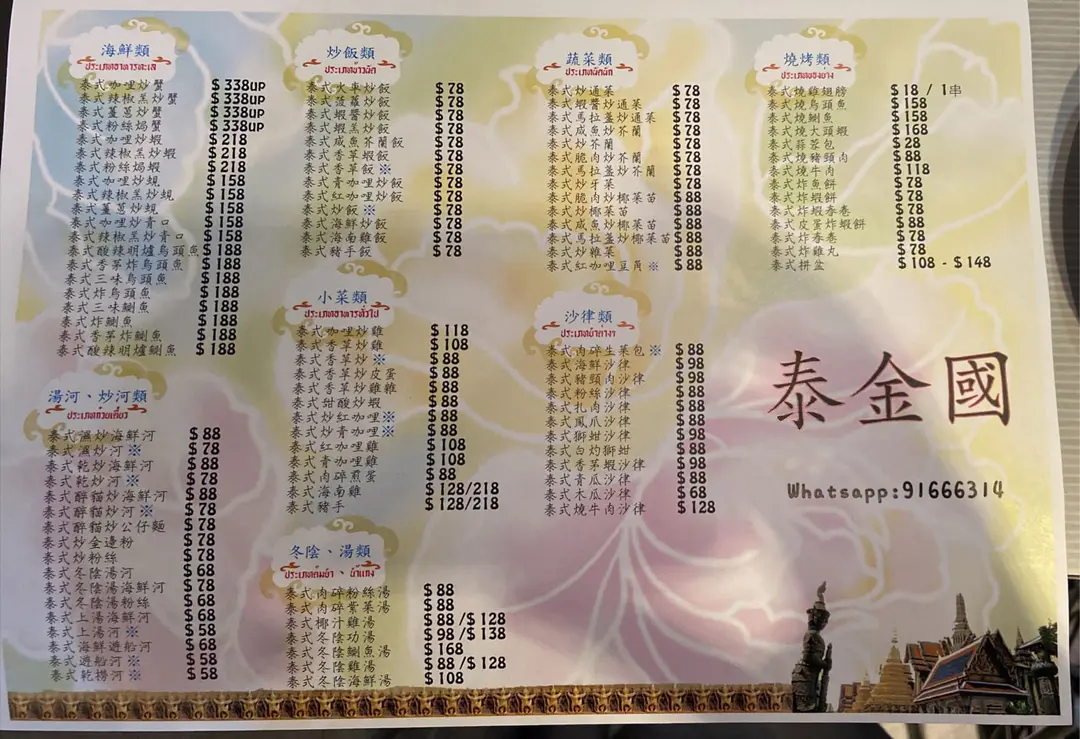 海鮮類
ประเภทอาหารทะเล
泰式咖哩炒蟹 $338UP
泰式辣椒羔炒蟹 $338UP
泰式薑蔥炒蟹 $338UP
泰式粉絲焗蟹 $338UP
泰式咖哩炒蝦 $218
泰式辣椒羔炒蝦 $218
泰式粉絲焗蝦 $218
泰式咖哩炒蜆 $158
泰式辣椒羔炒蜆 $158
泰式薑蔥炒蜆 $158
泰式咖哩炒青口 $158
泰式辣椒羔炒青口 $158
泰式酸辣明爐烏頭魚 $188
泰式香茅炸烏頭魚 $188
泰式三味烏頭魚 $188
泰式炸烏頭魚 $188
泰式三味鯏魚 $188
泰式炸鯏魚 $188
泰式香茅炸鯏魚 $188
泰式酸辣明爐鯏魚 $188
湯河、炒河類
ประเภทก๋วยเตี๋ยว
泰式濕炒海鮮河 $88
泰式濕炒河※ $78
泰式乾炒海鮮河 $88
泰式乾炒河※ $78
泰式醉貓炒海鮮河 $88
泰式醉貓炒河※ $78
泰式醉貓炒公仔麵 $78
泰式炒金邊粉 $78
泰式炒粉絲 $78
泰式冬陰湯河 $68
泰式冬陰湯海鮮河 $78
泰式冬陰湯粉絲 $68
泰式上湯海鮮河 $68
泰式上湯河※ $58
泰式海鮮遊船河 $68
泰式遊船河※ $58
泰式乾撈河※ $58
炒飯類
ประเภทข้าวผัด
泰式火車炒飯 $78
泰式菠蘿炒飯 $78
泰式蝦醬炒飯 $78
泰式蝦羔炒飯 $78
泰式咸魚芥蘭飯 $78
泰式香草蝦飯 $78
泰式香草飯※ $78
泰式青咖哩炒飯 $78
泰式紅咖哩炒飯 $78
泰式炒飯※ $78
泰式海鮮炒飯 $78
泰式海南雞飯 $78
泰式豬手飯 $78
小菜類
ประเภทอาหารทั่วไป
泰式咖哩炒雞 $118
泰式香草炒雞 $108
泰式香草炒※ $88
泰式香草炒皮蛋 $88
泰式香草炒雞雜 $88
泰式甜酸炒蝦 $88
泰式炒紅咖哩※ $88
泰式炒青咖哩※ $88
泰式紅咖哩雞 $108
泰式青咖哩雞 $108
泰式肉碎煎蛋 $88
泰式海南雞 $128/218
泰式豬手 $128/218
冬陰、湯類
ประเภทต้มยำ、น้ำแกง
泰式肉碎粉絲湯 $88
泰式肉碎紫菜湯 $88
泰式椰汁雞湯 $88/$128
泰式冬陰功湯 $98/$138
泰式冬陰鯏魚湯 $168
泰式冬陰雞湯 $88/$128
泰式冬陰海鮮湯 $108
蔬菜類
ประเภทผัดผัก
泰式炒通菜 $78
泰式蝦醬炒通菜 $78
泰式馬拉盞炒通菜 $78
泰式咸魚炒芥蘭 $78
泰式炒芥蘭 $78
泰式脆肉炒芥蘭 $78
泰式馬拉盞炒芥蘭 $78
泰式炒芽菜 $78
泰式脆肉炒椰菜苗 $88
泰式炒椰菜苗 $88
泰式咸魚炒椰菜苗 $88
泰式馬拉盞炒椰菜苗 $88
泰式炒雜菜 $88
泰式紅咖哩豆角※ $88
沙律類
ประเภทยำต่างๆ
泰式肉碎生菜包※ $88
泰式海鮮沙律 $98
泰式豬頸肉沙律 $98
泰式粉絲沙律 $88
泰式扎肉沙律 $88
泰式鳳爪沙律 $88
泰式獅蚶沙律 $98
泰式白灼獅蚶 $88
泰式香茅蝦沙律 $98
泰式青瓜沙律 $88
泰式木瓜沙律 $68
泰式燒牛肉沙律 $128
燒烤類
ประเภทของย่าง
泰式燒雞翅膀 $18 / 1串
泰式燒烏頭魚 $158
泰式燒鯏魚 $158
泰式燒大頭蝦 $168
泰式蒜蓉包 $28
泰式燒豬頸肉 $88
泰式燒牛肉 $118
泰式炸魚餅 $78
泰式炸蝦餅 $78
泰式炸蝦春卷 $78
泰式皮蛋炸蝦餅 $88
泰式炸春卷 $78
泰式炸雞丸 $78
泰式拼盆 $108 - $148
泰金國
Whatsapp:91666314